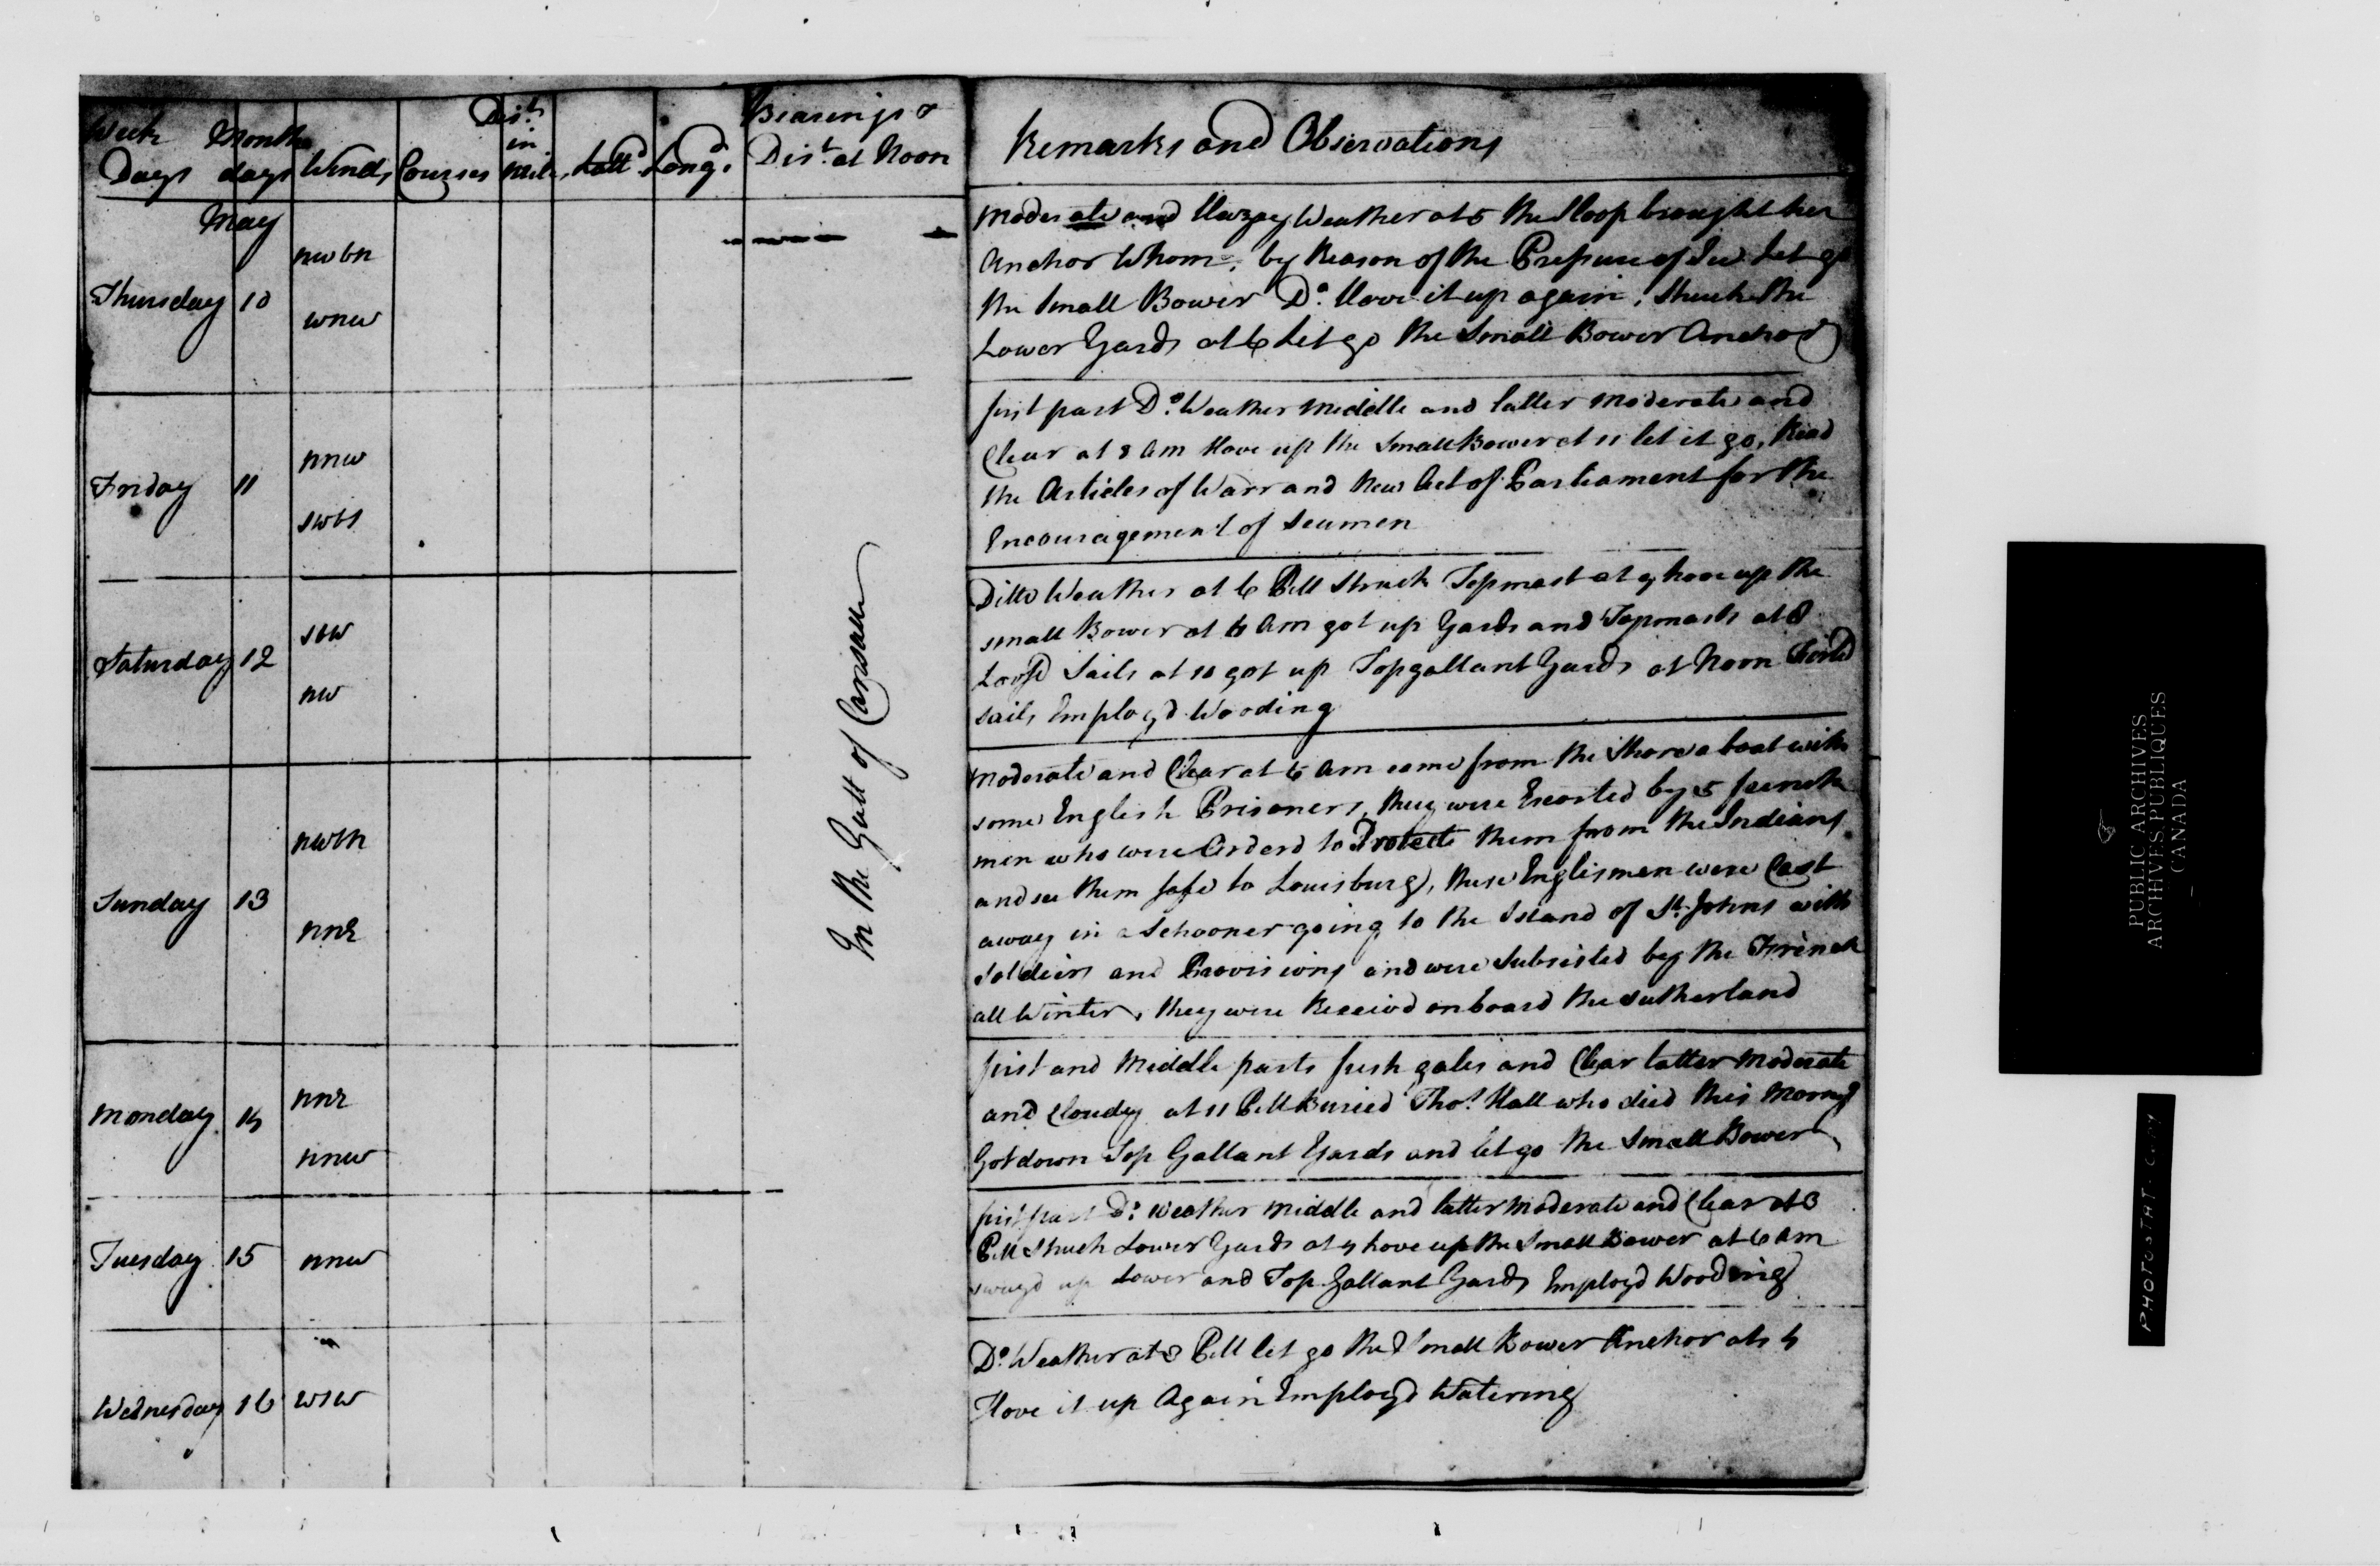 Week Days
Months days
Winds
Courses
Dist. in Miles
Lattd
Longd.
Bearings &
Dist. at Noon
Remarks and Observations
May
Thursday 10
nwbn
wnw
Moderate and Hazey Weather at 5 the Sloop brought her
Anchor Whom. by Reason of the of Ice Let go
the Small Bower Do. Hove it up again, Struck the
Lower Yards at 6 Let go the Small Bower Anchor
Friday 11
nnw
swbs
first part Do. Weather Middle and latter Moderate and
Clear at 8 Am Hove up the Small Bower at 11 let it go, Read
the Articles of Warr and New Act of Parliament for the
Encouragement of Seamen
Saturday 12
sbw
nw
Ditto Weather at 6 PM Struck Topmast at 9 hove up the
small Bower at 6 Am got up Yards and Topmasts at 8
Loos'd Sails at 10 got up Topgallant Yards at Noon
sails Employ'd Wooding
In the Gutt of Canseaux
Sunday 13
nwbn
nnE
Moderate and Clear at 6 Am came from the Shore a boat with
some English Prisoners, they were Escorted by 5 french
men who were Orderd to Protect them from the Indians
and see them safe to Louisburg, these Englismen were Cast
away in a Schooner going to the Island of St. Johns with
Soldiers and Provisions and were Subsisted by the French
all Winter, they were Receivd onboard the Sutherland
Monday 14
nnE
nnw
first and Middle parts fresh gales and Clear latter Moderate
and Cloudy at 11 PM Buried Thos. Hall who died this Morng
Got down Top Gallant Yards and let go the Small Bower
Tuesday 15
nnw
first part Do. Weather Middle and latter Moderate and Clear at 3
PM Struck Lower Yards at 4 hove up the Small Bower at 6 Am
swayd up Lower and Top Gallant Yards Employd Wooding
Wednesday 16
wsw
Do. Weather at 3 PM let go the Small Bower Anchor at 4
Hove it up Again Employd Watering
PUBLIC ARCHIVES
ARCHIVES PUBLIQUES
CANADA
PHOTOSTAT COPY